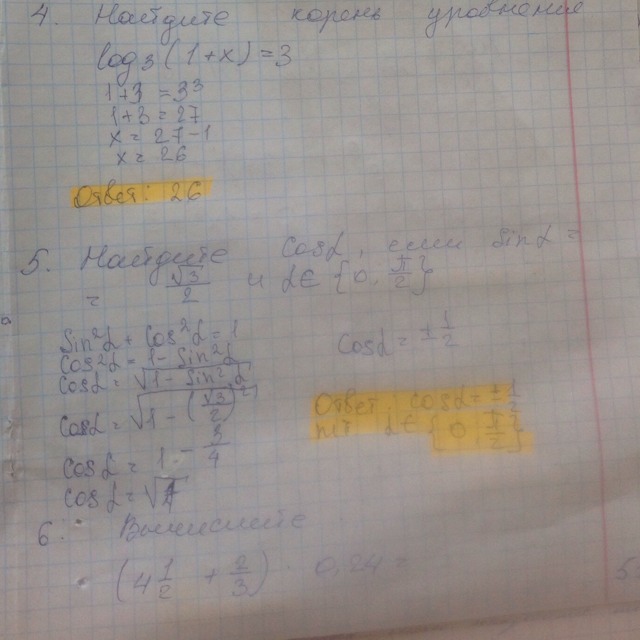 4. Найдите корень уравнение
log₃(1+x)=3
1+3 =3³
1+3 = 27
x = 27-1
x = 26
Ответ: 26
5. Найдите cosL, если sinL =
= √3/2 и L∈ [0, π/2]
Sin²L + Cos²L = 1
Cos²L = 1-Sin²L
CosL = √1-Sin²L
CosL = √1-(√3/2)²
CosL = 1 - 3/4
CosL = √
CosL = ± 1/2
Ответ: cosL =
L∈ [0
6. Вычислите
(4 1/2 + 2/3) · 0.24 =